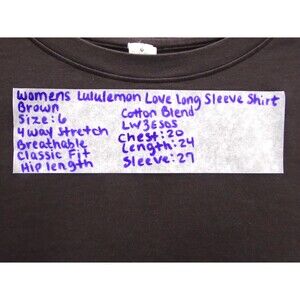 Womens Lululemon Love Long Sleeve Shirt
Brown
Size: 6
4 way stretch
Breathable
Classic Fit
Hip length
Cotton Blend
LW3ESDS
Chest: 20
Length: 24
Sleeve: 27